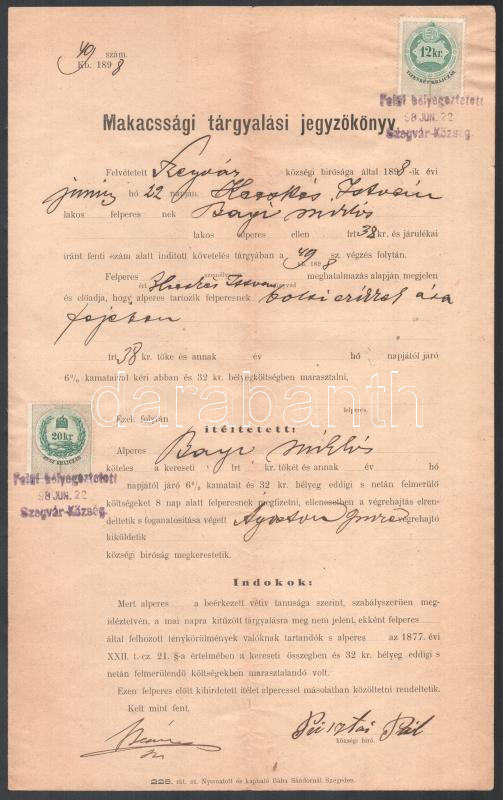 49 szám.
Kb. 1898
12kr.
TIZENKÉT KRAJCZÁR
Felül bélyegeztetett
98 JUN. 22
Szegvár-Község.
Makacssági tárgyalási jegyzőkönyv.
Felvétetett Szegvár községi birósága által 1898-ik évi
június hó 22 napján, Kecskés István
lakos felperes nek Bagi Miklós
lakos alperes ellen frt 38 kr. és járulékai
iránt fenti szám alatt inditott követelés tárgyában a 49 sz. végzés folytán.
kb. 1898
Felperes személyesen meghatalmazás alapján megjelen
ért Kecskés István
és előadja, hogy alperes tartozik felperesnek bolti czikkek ára
fejében
frt 38 kr. tőke és annak év hó napjától járó
6% kamataival kéri abban és 32 kr. bélyegköltségben marasztalni,
felperes.
Ezek folytán
itéltetett:
20kr
HÚSZ KRAJCZÁR
Felül bélyegeztetett
98 JUN. 22
Szegvár-Község.
darabanth
Alperes Bagi Miklós
köteles a kereseti frt kr. tőkét és annak év hó
napjától járó 6% kamatait és 32 kr. bélyeg eddigi s netán felmerülendő
költségeket 8 nap alatt felperesnek megfizetni, ellenesetben a végrehajtás elren-
deltetik s foganatositása végett Ágoston Imre végrehajtó
kiküldetik
községi biróság megkerestetik.
Indokok:
Mert alperes a beérkezett vétiv tanusága szerint, szabályszerüen meg-
idéztetvén, a mai napra kitüzött tárgyalásra meg nem jelent, ekként felperes
által felhozott ténykörülmények valóknak tartandók s alperes az 1877. évi
XXII. t.-cz. 21. §-a értelmében a kereseti összegben és 32 kr. bélyeg eddigi s
netán felmerülendő költségekben marasztalandó volt.
Ezen felperes előtt kihirdetett itélet alperessel másolatban közöltetni rendeltetik.
Kelt mint fent.
Pusztai Pál
községi biró.
226. rkt. sz. Nyomatott és kapható Bába Sándornál Szegeden.